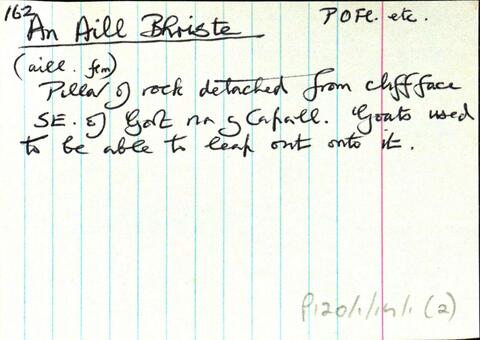 162
An Aill Bhriste
P O Fl. etc.
(aill. fem)
Pillar of rock detached from cliff face
SE. of Gort na gCapall. Goats used
to be able to leap out onto it.
P120/1/14/1 (2)